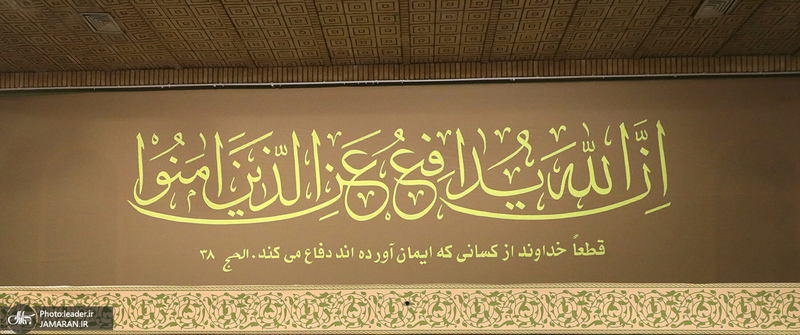 اِنَّ اللّٰهَ يُدافِعُ عَنِ الَّذينَ امَنُوا
قطعاً خداوند از کسانی که ایمان آورده اند دفاع می کند. الحج ۳۸
Photo:leader.ir
JAMARAN.IR